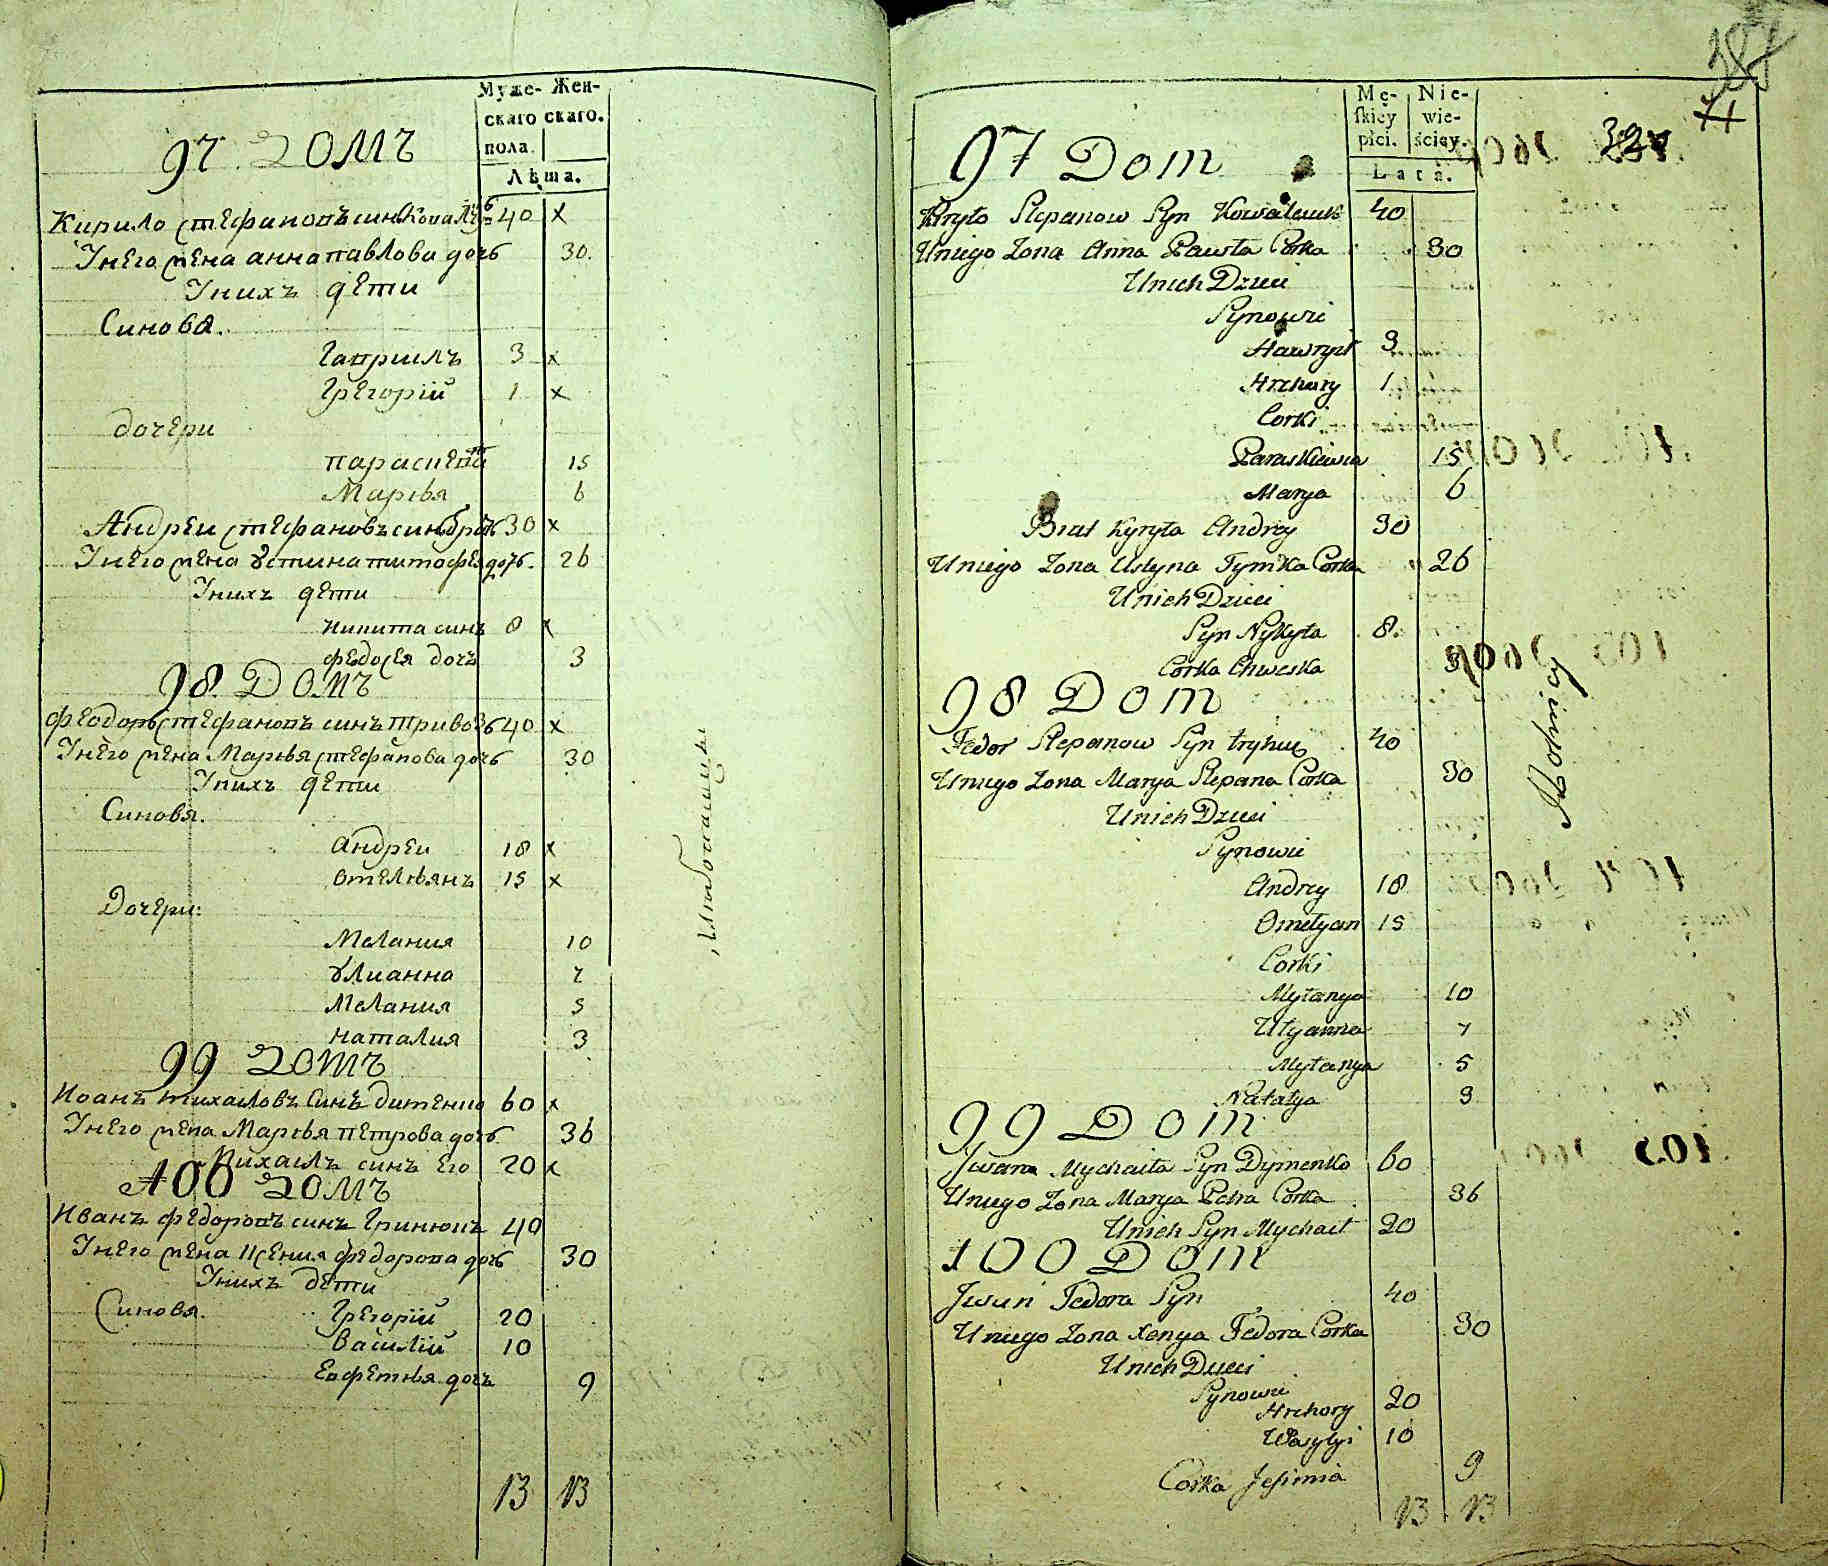 Муже-
скаго
пола.
Жен-
скаго.
Лѣта.
97 Домъ
Кирило Стефановъ синъ Ковалчукъ 40 x
У него жена анна павлова дочь 30.
У нихъ дети
Синовя.
Гавриилъ 3 x
Грегорїй 1 x
дочери
параскевия 15
Марья 6
Андреи Стефановъ синъ братъ 30 x
У него жена устина тимофея дочь. 26
У нихъ дети
никита синъ 8 x
федосея дочь 3
98 Домъ
Феодоръ Стефановъ синъ 40 x
У него жена Марья стефанова дочь 30
У нихъ дети
Синовя.
Андреи 18 x
Омельянъ 15 x
Дочери:
Мелания 10
улианна 7
Мелания 5
наталия 3
99 Домъ
Иоанъ михаиловъ Синъ дименко 60 x
У него жена Марья петрова дочь 36
Михаилъ синъ его 20 x
100 Домъ
Иванъ федоровъ синъ Гринюкъ 40
У него жена Ксения федорова дочь 30
У нихъ дети
Синовя. Грегорїй 20
Василїй 10
Евфемья дочь 9
13 13
387
71
Mę-
skiey
płci.
Nie-
wie-
ściey.
Lata.
97 Dom
Kyryło Stepanow Syn Kowalczuk 40
Uniego Żona Anna Pawła Corka 30
Unich Dzieci
Synowie
Hawryił 3
Hrehory 1
Corki
Paraskiewia 15
Marya 6
Brat Kyryła Andrey 30
Uniego Żona Ustyna Tymka Corka 26
Unich Dzieci
Syn Nykyta 8.
Corka Chweska 3
98 Dom
Fedor Stepanow Syn 40
Uniego Żona Marya Stepana Corka 30
Unich Dzieci
Synowie
Andrey 18
Omelyan 15
Corki
Mełanya 10
Ulyanna 7
Mełanya 5
Natalya 3
99 Dom
Iwan Mychaiła Syn Dymenko 60
Uniego Żona Marya Petra Corka 36
Unich Syn Mychaił 20
100 Dom
Iwan Fedora Syn 40
Uniego Żona Xenya Fedora Corka 30
Unich Dzieci
Synowie
Hrehory 20
Wasylyi 10
Corka Jefimia 9
13 13
Rolnicy